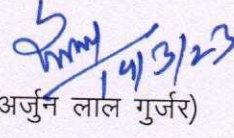 14/3/23
अर्जुन लाल गुर्जर)